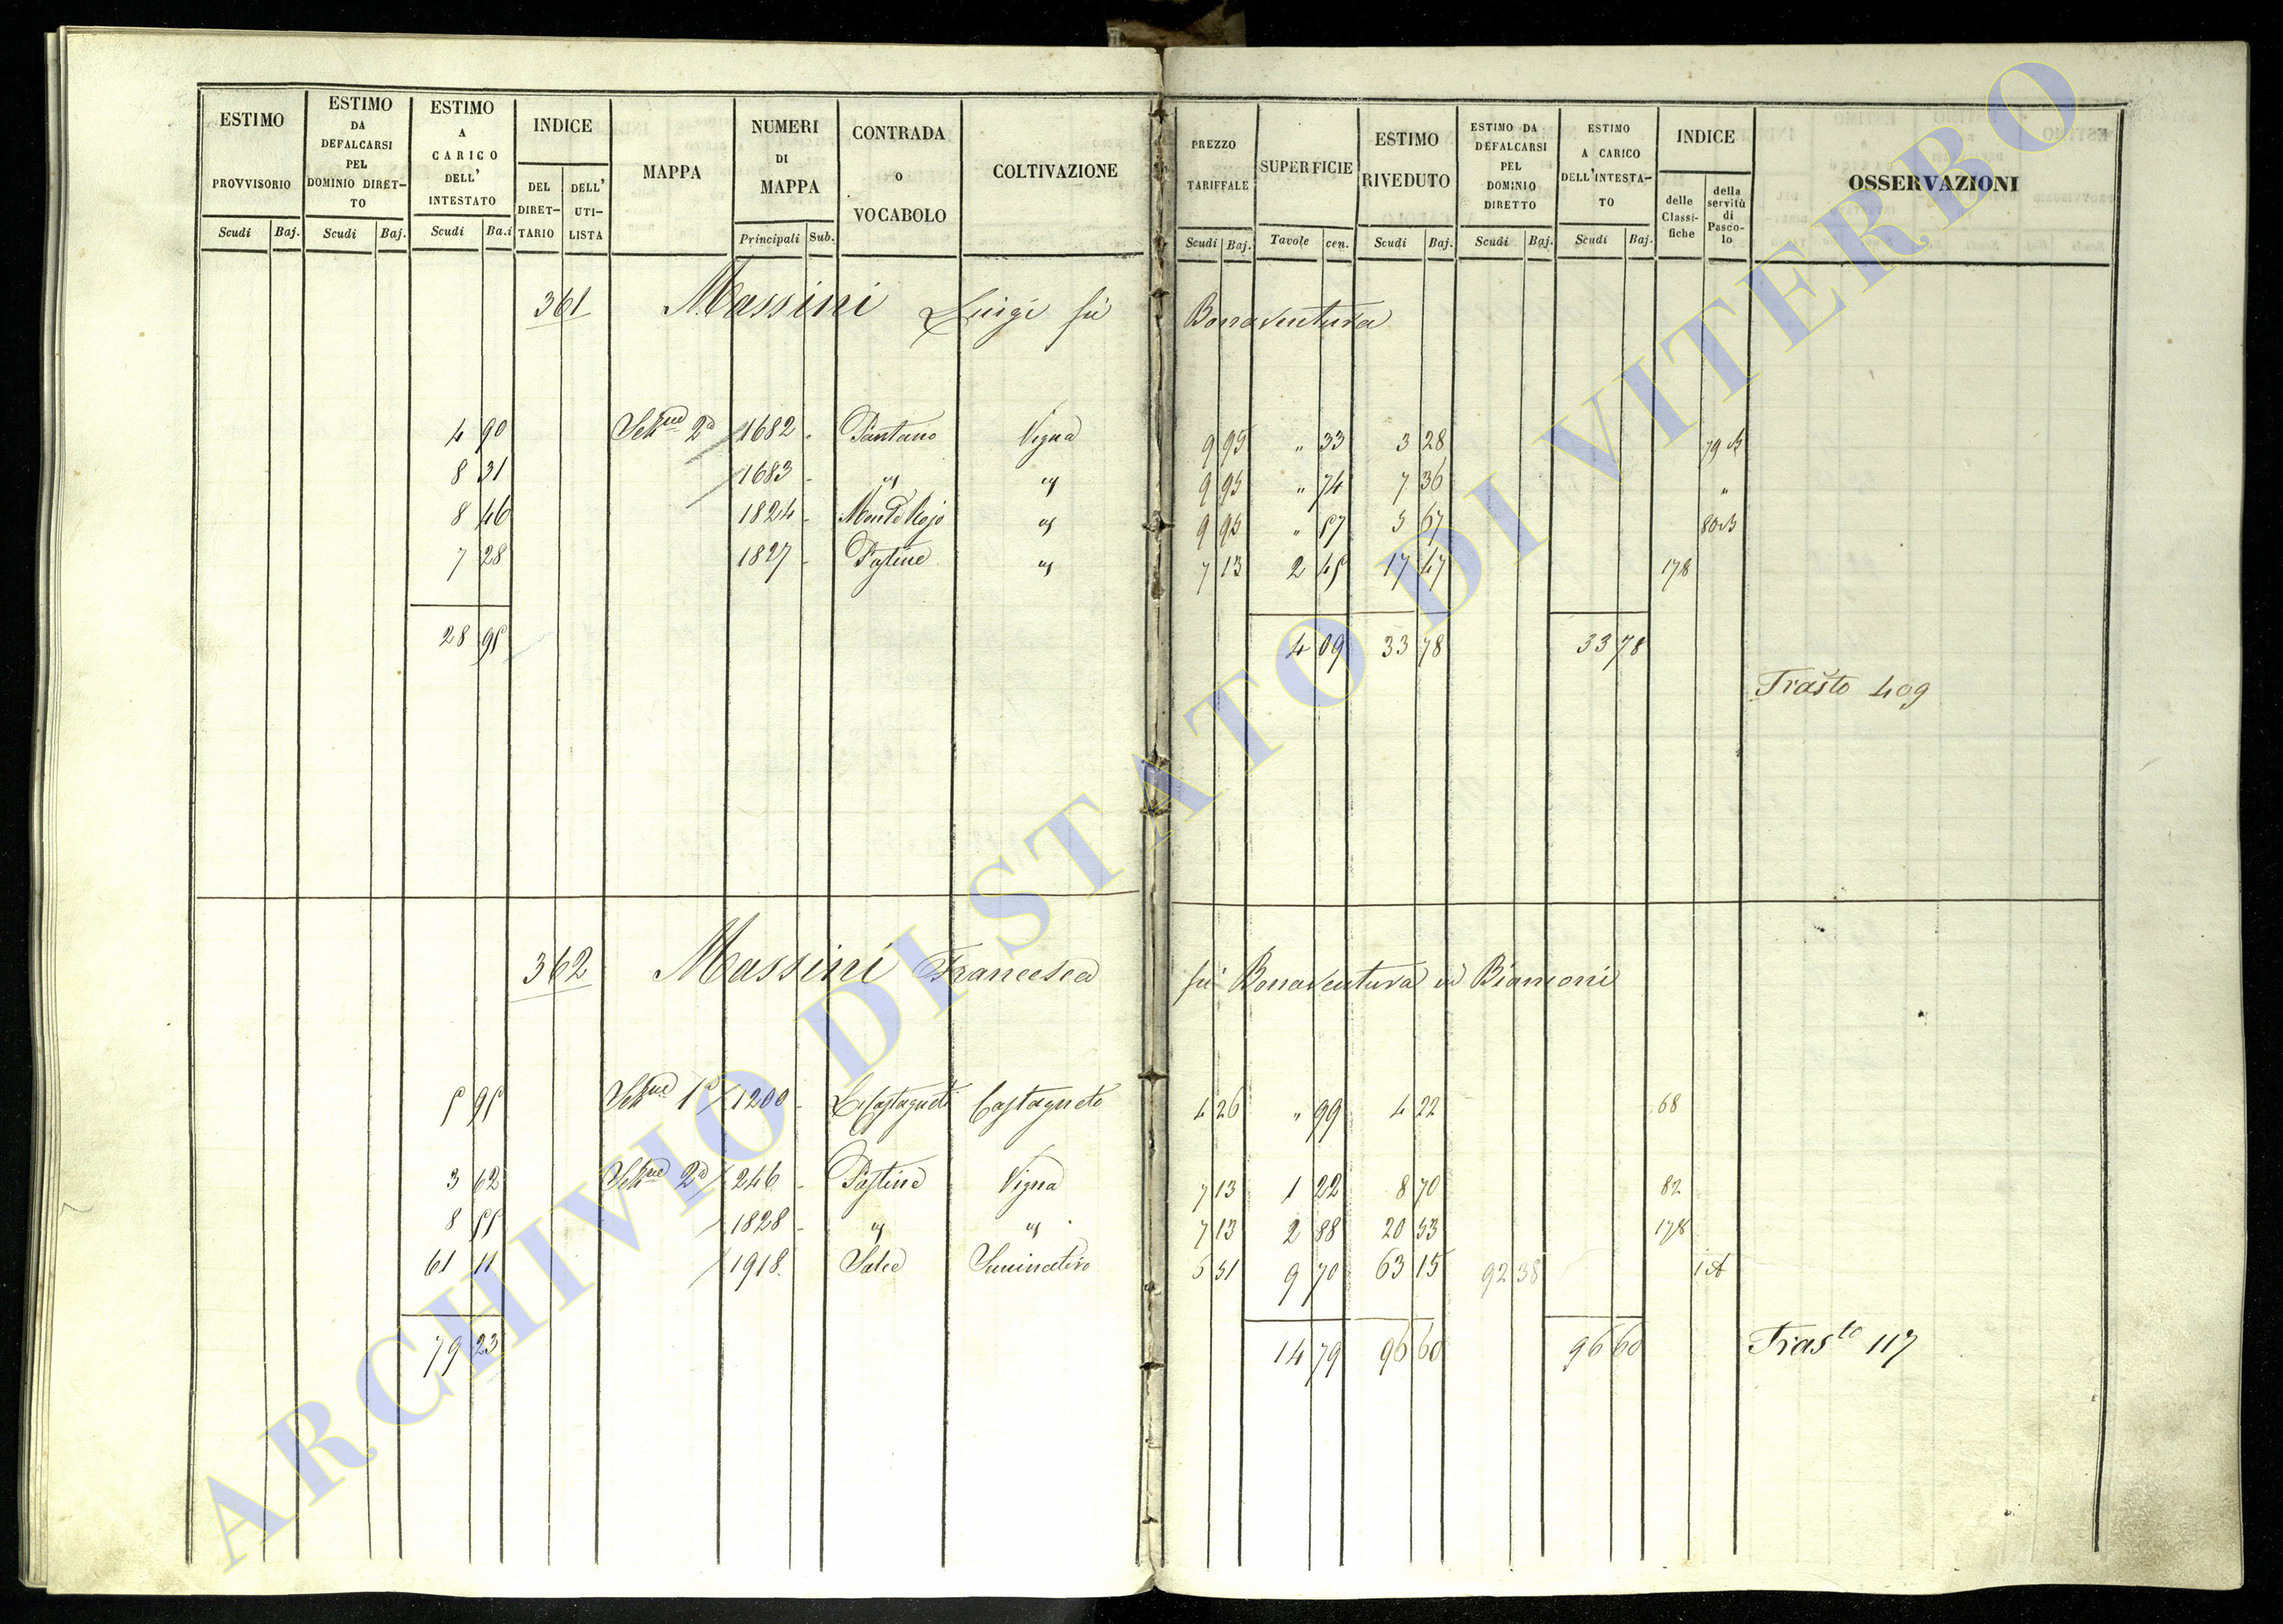 ESTIMO PROVVISORIO Scudi Baj.
ESTIMO DA DEFALCARSI PEL DOMINIO DIRET-TO Scudi Baj.
ESTIMO A CARICO DELL' INTESTATO Scudi Ba.i
INDICE DEL DIRET-TARIO DELL' UTI-LISTA
MAPPA
NUMERI DI MAPPA Principali Sub.
CONTRADA O VOCABOLO
COLTIVAZIONE
PREZZO TARIFFALE Scudi Baj.
SUPERFICIE Tavole cen.
ESTIMO RIVEDUTO Scudi Baj.
ESTIMO DA DEFALCARSI PEL DOMINIO DIRETTO Scudi Baj.
ESTIMO A CARICO DELL'INTESTA-TO Scudi Baj.
INDICE delle Classi-fiche della servitù di Pasco-lo
OSSERVAZIONI
361 Massini Luigi fù Bonaventura
4 90 Sez.ne 2a 1682 - Pantano Vigna 9 95 " 33 3 28 79
8 31 1683 - " " 9 95 " 74 7 36 "
8 46 1824 - " 9 95 " 57 5 67
7 28 1827 - Pastine " 7 13 2 45 17 47 178
28 95 4 09 33 78 33 78
Trasto 409
362 Massini Francesca fù Bonaventura in Biamoni
5 95 Sez.ne 1a 1200 - Castagneto 4 26 " 99 4 22 68
3 62 Sez.ne 2a 246 - Pastine Vigna 7 13 1 22 8 70 82
8 55 1828 - " " 7 13 2 88 20 53 178
61 11 1918 Seminativo 6 51 9 70 63 15 92 38
79 23 14 79 96 60 96 60 Trasto 117
ARCHIVIO DI STATO DI VITERBO